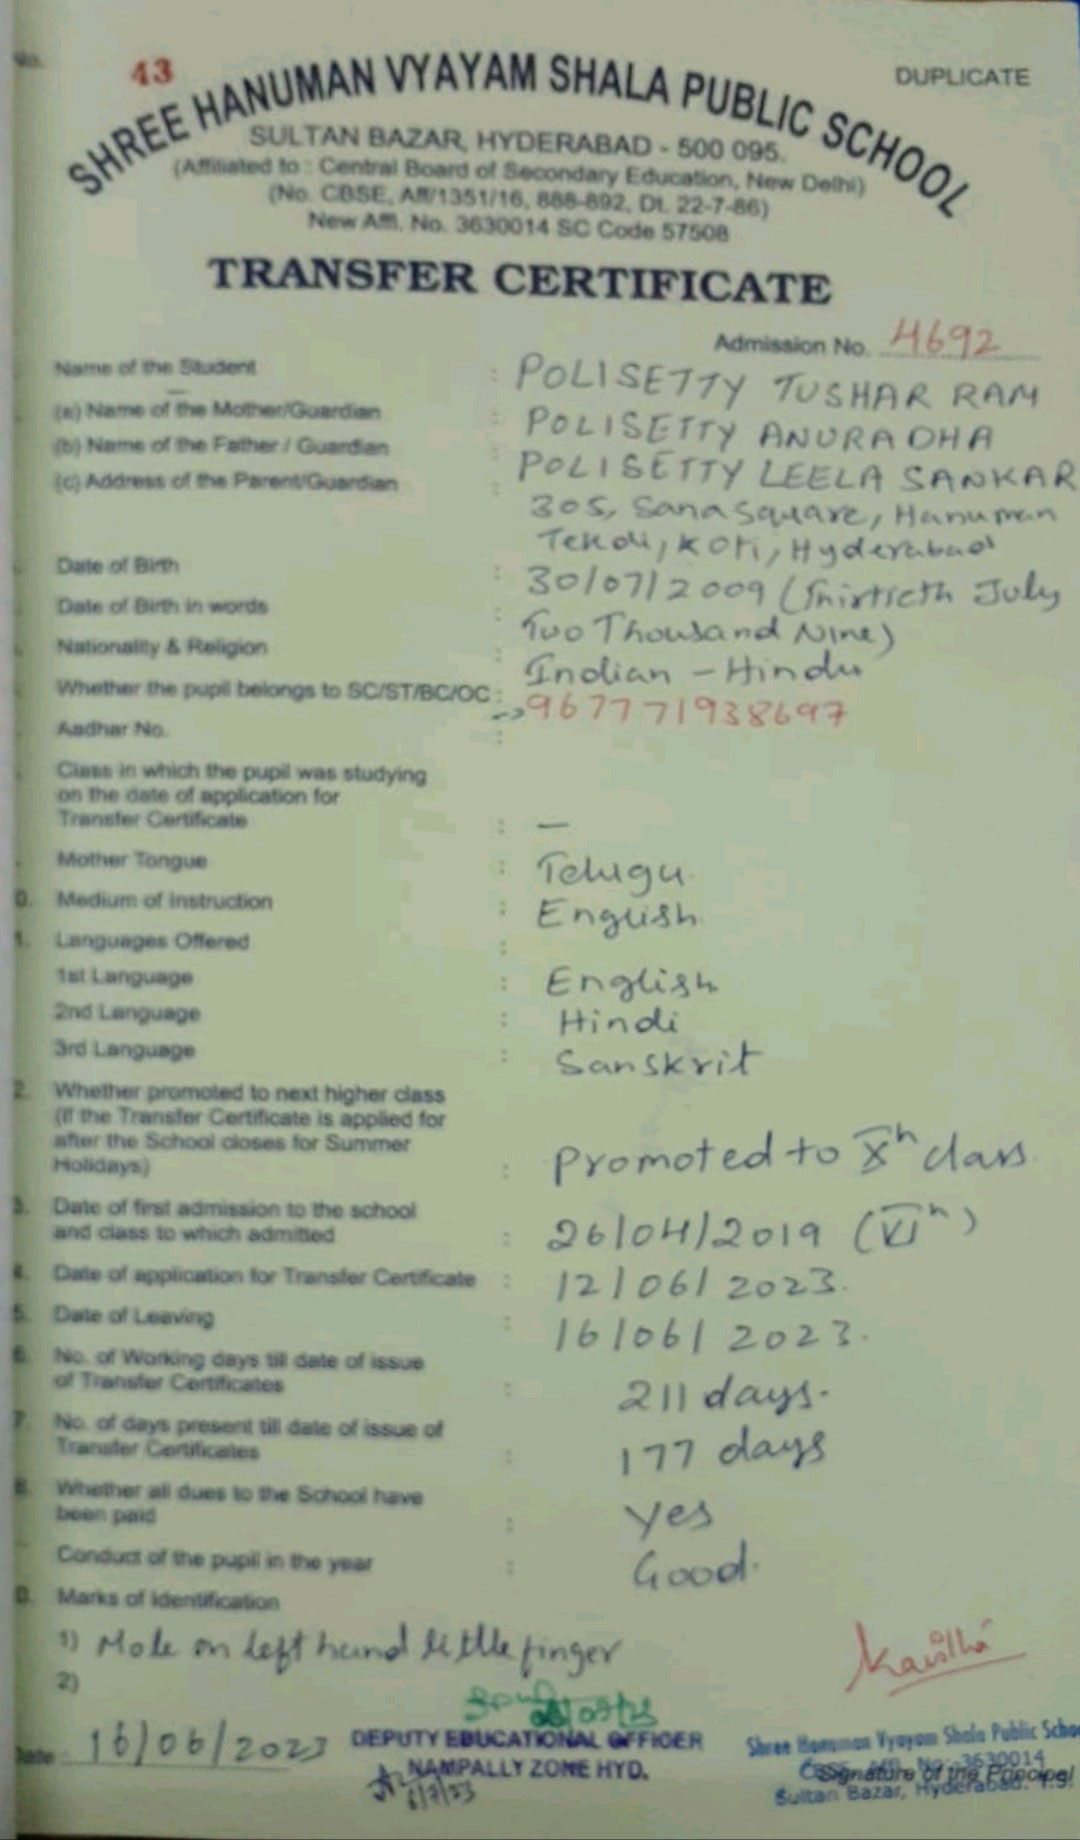 No. 43
DUPLICATE
SHREE HANUMAN VYAYAM SHALA PUBLIC SCHOOL
SULTAN BAZAR, HYDERABAD - 500 095.
(Affiliated to : Central Board of Secondary Education, New Delhi)
(No. CBSE, Aff/1351/16, 888-892, Dt. 22-7-86)
New Affi. No. 3630014 SC Code 57508
TRANSFER CERTIFICATE
Admission No. 4692
Name of the Student : POLISETTY TUSHAR RAM
(a) Name of the Mother/Guardian : POLISETTY ANURADHA
(b) Name of the Father / Guardian : POLISETTY LEELA SANKAR
(c) Address of the Parent/Guardian : 305, Sana Square, Hanuman
Tekdi, Koti, Hyderabad
Date of Birth : 30/07/2009 (Thirtieth July
Date of Birth in words : Two Thousand Nine)
Nationality & Religion : Indian - Hindu
Whether the pupil belongs to SC/ST/BC/OC :
Aadhar No. : 967771938697
Class in which the pupil was studying
on the date of application for
Transfer Certificate : —
Mother Tongue : Telugu
0. Medium of Instruction : English
1. Languages Offered :
1st Language : English
2nd Language : Hindi
3rd Language : Sanskrit
2. Whether promoted to next higher class
(If the Transfer Certificate is applied for
after the School closes for Summer
Holidays) : Promoted to Xh class
3. Date of first admission to the school
and class to which admitted : 26/04/2019 (VIh)
4. Date of application for Transfer Certificate : 12/06/2023.
5. Date of Leaving : 16/06/2023.
6. No. of Working days till date of issue
of Transfer Certificates : 211 days.
7. No. of days present till date of issue of
Transfer Certificates : 177 days
8. Whether all dues to the School have
been paid : Yes
Conduct of the pupil in the year : Good.
0. Marks of Identification
1) Mole on left hand little finger
2)
Kavitha
Date : 16/06/2023
DEPUTY EDUCATIONAL OFFICER
NAMPALLY ZONE HYD.
Shree Hanuman Vyayam Shala Public School
Affi. No: 3630014
Signature of the Principal
Sultan Bazar, Hyderabad.